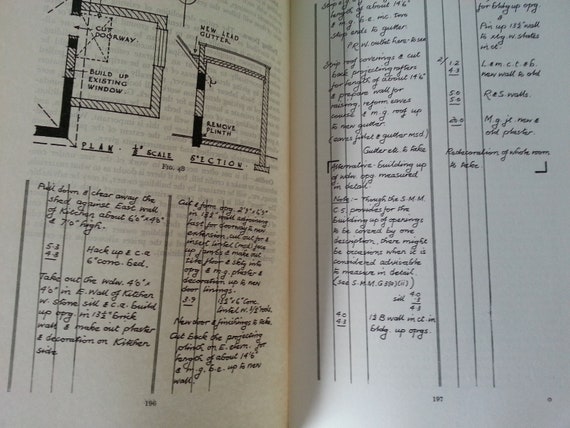 CUT
DOORWAY.
BUILD UP
EXISTING
WINDOW.
NEW LEAD
GUTTER.
REMOVE
PLINTH
PLAN. SCALE SECTION.
FIG. 48
Pull down & clear away the
shed against East wall
of Kitchen about 6'0" x 4'3"
& 7'0" high.
5.3
4.3
Hack up & c.a
6" conc. bed.
Take out the wdw. 4'0" x
4'0" in E. Wall of Kitchen
w. stone sill & c.a. build
up opg. in 13½" brick
wall & make out plaster
& decoration on Kitchen
side
Cut & form opg. 2'9" x 6'9"
in 13½" wall
for doorway & new
cut out for &
insert lintel (msd.) pin
up jambs & make out
floor &
opg & m.g. plaster &
decoration up to new
door linings.
3.9
13½" x 6" conc.
lintel
New door & finishings to take.
Cut back the projecting
plinth on E. elevn. for
length of about 14'6"
& m.g. b.e. up to new
wall.
196
length of about 14'6"
& m.g. & mc. two
stop ends to gutter
P.R.W. outlet here to
Strip roof coverings & cut
back projecting rafters
for length of about 14'6"
& prepare wall for
reform eaves
course & m.g. roof up
to new gutter
(eaves fillet & gutter msd.)
Gutter etc. to take
Alternative - building up
of wdw. opg. measured
in detail
Note:- Though the S.M.M.
C.5. provides for the
building up of openings
to be covered by one
description, there might
be occasions when it is
considered advisable
to measure in detail.
(see S.M.M.
4.0
sill 4.0
4.3
4.0
4.3
1½ B wall in ct. in
bldg up opgs.
for bldg up opg
&
Pin up 13½" wall
to
in ct.
2/ 1.2
4.3
L & m. c. t. & b.
new wall to old.
5.0
5.0
R & S walls.
20.0
M.g. jt. new &
old plaster.
Redecoration of whole room
to take
197
O